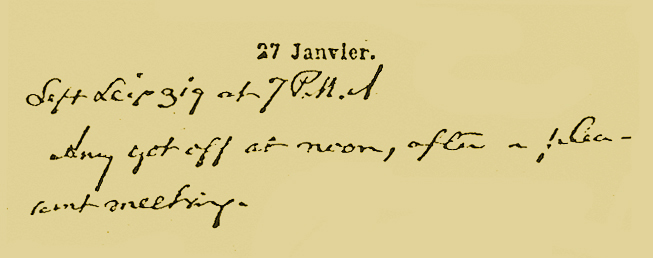 27 Janvier.
Left Leipzig at 7 P.M.
Amy got off at noon, after a plea-
sant meeting.